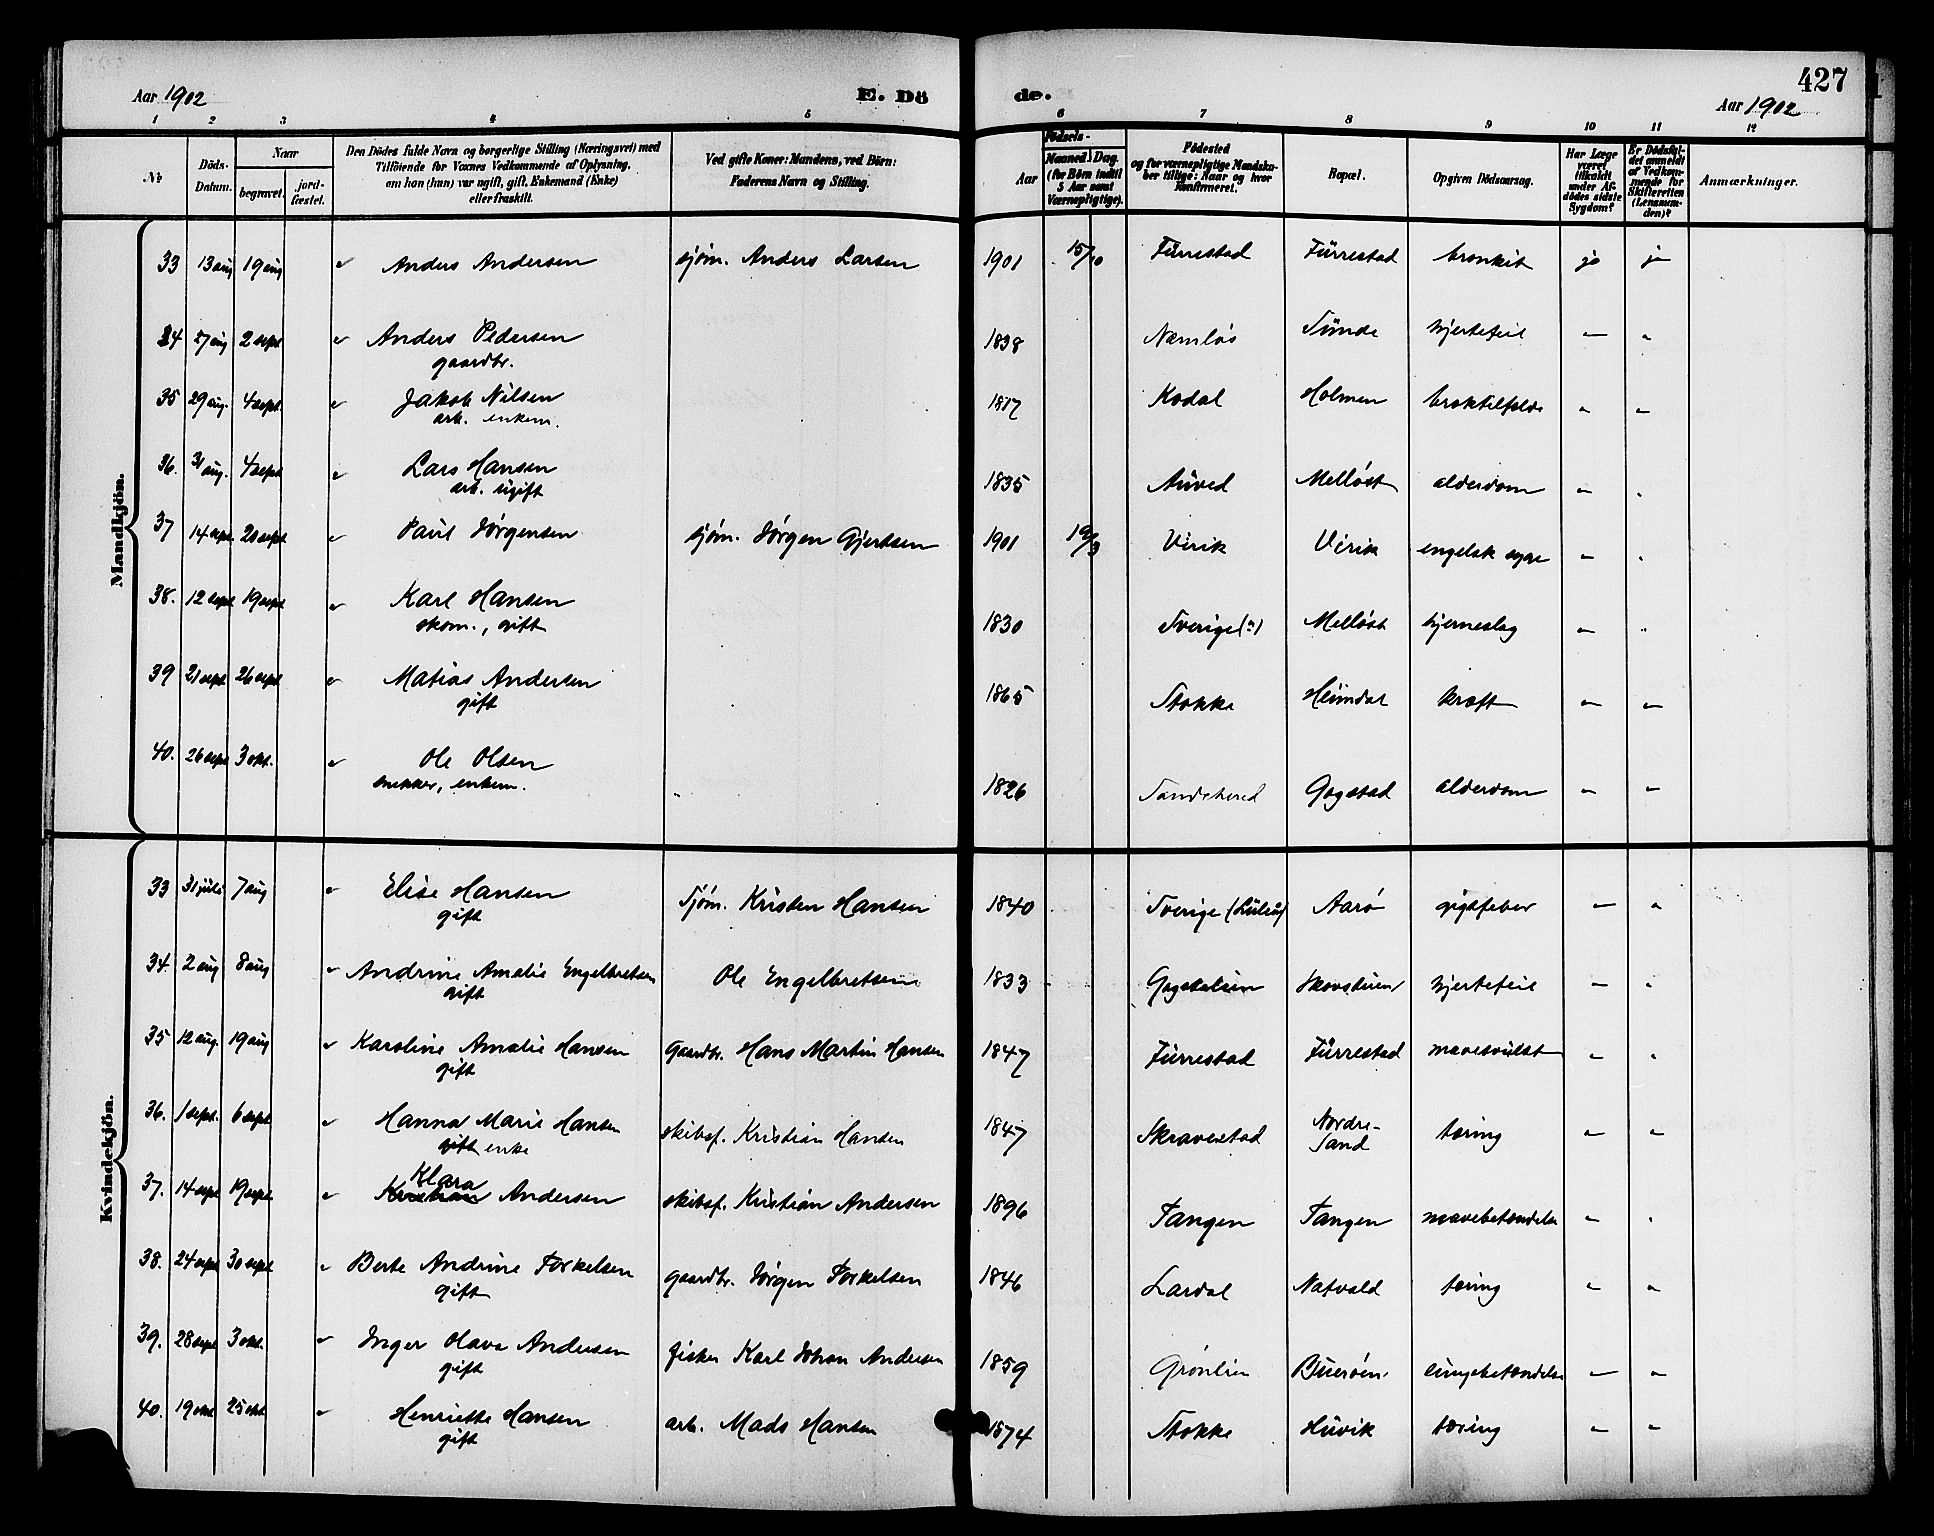 427
Aar 1902
E. Dö
de.
Aar 1902
1 2 3 4 5 6 7 8 9 10 11 12
No
Döds-Datum.
Naar
begravet.
jord-fæstet.
Den Dödes fulde Navn og borgerlige Stilling (Næringsvei) med
Tilföiende for Voxnes Vedkommende af Oplysning,
om han (hun) var ugift, gift, Enkemand (Enke)
eller fraskilt.
Ved gifte Koner: Mandens, ved Börn:
Faderens Navn og Stilling.
Födsels-
Aar
Maaned. Dag.
(for Börn indtil
5 Aar samt
Værnepligtige).
Födested
og for værnepligtige Mandska-
ber tillige: Naar og hvor
Konfirmeret.
Bopæl.
Opgiven Dödsaarsag.
Har Læge
været
tilkaldt
under Af-
dödes sidste
Sygdom?
Er Dödsfal-
det anmeldt
af Vedkom-
mende for
Skifteretten
(Lensman-
den)?
Anmærkninger.
Mandkjön.
33 13 aug 19 aug " Anders Andersen sjøm. Anders Larsen 1901 15/10 Furrestad Furrestad bronkit ja ja
34 27 aug 2 sept " Anders Pedersen 1838 Namløs Sunde hjertefeil — "
gaardbr.
35 29 aug. 4 sept. " Jakob Nilsen 1817 Kodal Holmen broktilfælde " "
arb. enkem.
36. 31 aug. 4 sept " Lars Hansen 1835 Auved Melløst alderdom " "
arb. ugift
37 14 sept. 20 sept " Paul Jørgensen sjøm. Jørgen Gjertsen 1901 19/3 Virik Virik engelsk syge " "
38. 12 sept 19 sept " Karl Hansen 1830 Sverige (?) Melløst hjerneslag " "
skom., gift
39 21 sept 26 sept " Matias Andersen 1865 Stokke Heimdal kræft " "
gift
40. 26 sept 3 okt. " Ole Olsen " 1826 Sandeherred Gogstad alderdom " "
snekker, enkem.
Kvindekjön.
33 31 juli 7 aug " Elise Hansen Sjøm. Kristen Hansen 1840 Sverige (Luleå) Aarø gigtfeber — "
gift
34. 2 aug 8 aug " Andrine Amalie Engelbretsen Ole Engelbretsen 1833 Gogstad Skovsteen hjertefeil — "
gift
35 12 aug. 19 aug " Karoline Amalie Hansen Gaardbr. Hans Martin Hansen 1847 Furrestad Furrestad mavesvulst " "
gift
36. 1 sept. 6 sept " Hanna Marie Hansen skibsf. Kristian Hansen 1847 Skravestad Nordre-Sand tæring " "
gift enke
37. 14 sept 19 sept. " Kristian Klara Andersen skibsf. Kristian Andersen 1896 Tangen Tangen mavebetændelse " "
38. 24 sept 30 sept " Berte Andrine Torkelsen gaardbr. Jørgen Torkelsen 1846 Lardal Natvald tæring " "
gift
39. 28 sept 3 okt. " Inger Olava Andersen fisker Karl Johan Andersen 1859 Grønlien Buerøen lungebetændelse — "
gift
40. 19 okt 25 okt " Henriette Hansen arb. Mads Hansen 1874 Stokke Huvik tæring " "
gift